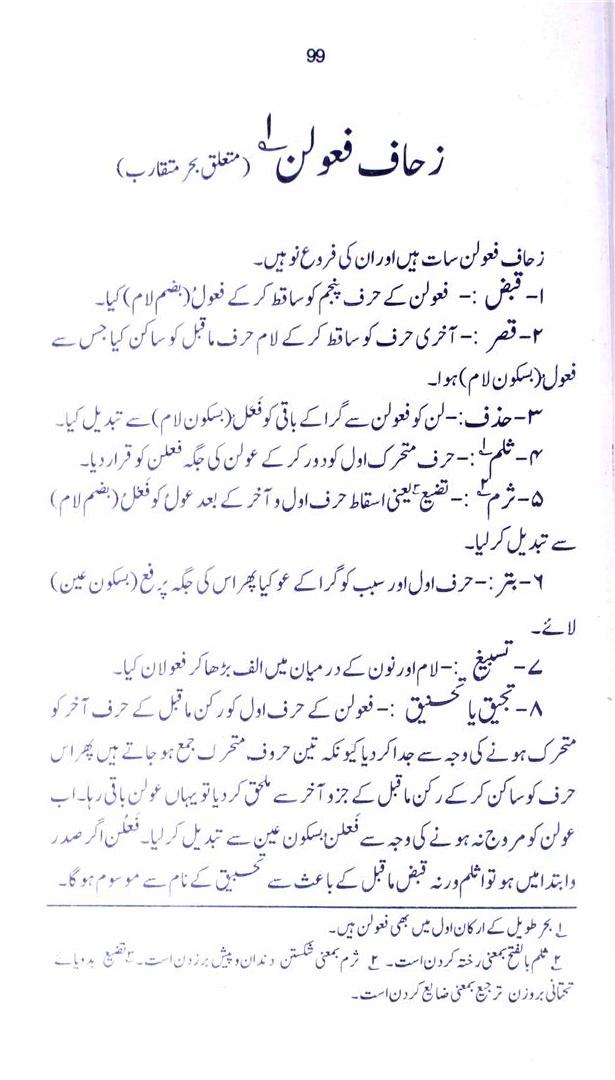 99
زحاف فعولن ۱؎ (متعلق بحر متقارب)
زحاف فعولن سات ہیں اور ان کی فروع نو ہیں۔
۱- قبض :- فعولن کے حرف پنجم کو ساقط کر کے فعولُ (بضم لام) کیا۔
۲- قصر :- آخری حرف کو ساقط کر کے لام حرف ماقبل کو ساکن کیا جس سے
فعولْ (بسکون لام) ہوا۔
۳- حذف :- لن کو فعولن سے گرا کے باقی کو فَعَلْ (بسکون لام) سے تبدیل کیا۔
۴- ثلم ۱؎ :- حرف متحرک اول کو دور کر کے عولن کی جگہ فعلن کو قرار دیا۔
۵- ثرم ۲؎ :- تضیع ۳؎ یعنی اسقاط حرف اول و آخر کے بعد عولُ کو فَعْلُ (بضم لام)
سے تبدیل کر لیا۔
۶- بتر :- حرف اول اور سبب کو گرا کے عو کیا پھر اس کی جگہ پر فع (بسکون عین)
لائے۔
۷- تسبیغ :- لام اور نون کے درمیان میں الف بڑھا کر فعولان کیا۔
۸- تحبیق یا تخنیق :- فعولن کے حرف اول کو رکن ماقبل کے حرف آخر کو
متحرک ہونے کی وجہ سے جدا کر دیا کیونکہ تین حروف متحرک جمع ہو جاتے ہیں پھر اس
حرف کو ساکن کر کے رکن ماقبل کے جزو آخر سے ملحق کر دیا تو یہاں عولن باقی رہا۔ اب
عولن کو مروج نہ ہونے کی وجہ سے فَعْلن بسکون عین سے تبدیل کر لیا۔ فَعْلُن اگر صدر
و ابتدا میں ہو تو اثلم ورنہ قبض ماقبل کے باعث سے تحبیق کے نام سے موسوم ہوگا۔
۱؎ بحر طویل کے ارکان اول میں بھی فعولن ہیں۔
۲؎ ثلم بالفتح بمعنی رخنہ کردن است۔ ۲؎ ثرم بمعنی شکستن دندان و پیش برزدن است۔ ۳؎ تضیع بدو یائے
تحتانی بروزن ترجیع بمعنی ضایع کردن است۔